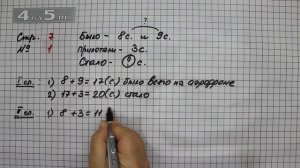 4DA5.RU
?
Стр. 7 Было - 8с. и 9с.
№ 1 Прилетали - 3с.
Стало - ? с.
I сп. 1) 8 + 9 = 17(с) было всего на аэродроме
2) 17+3=20(с) стало
II сп. 1) 8 + 3 = 11